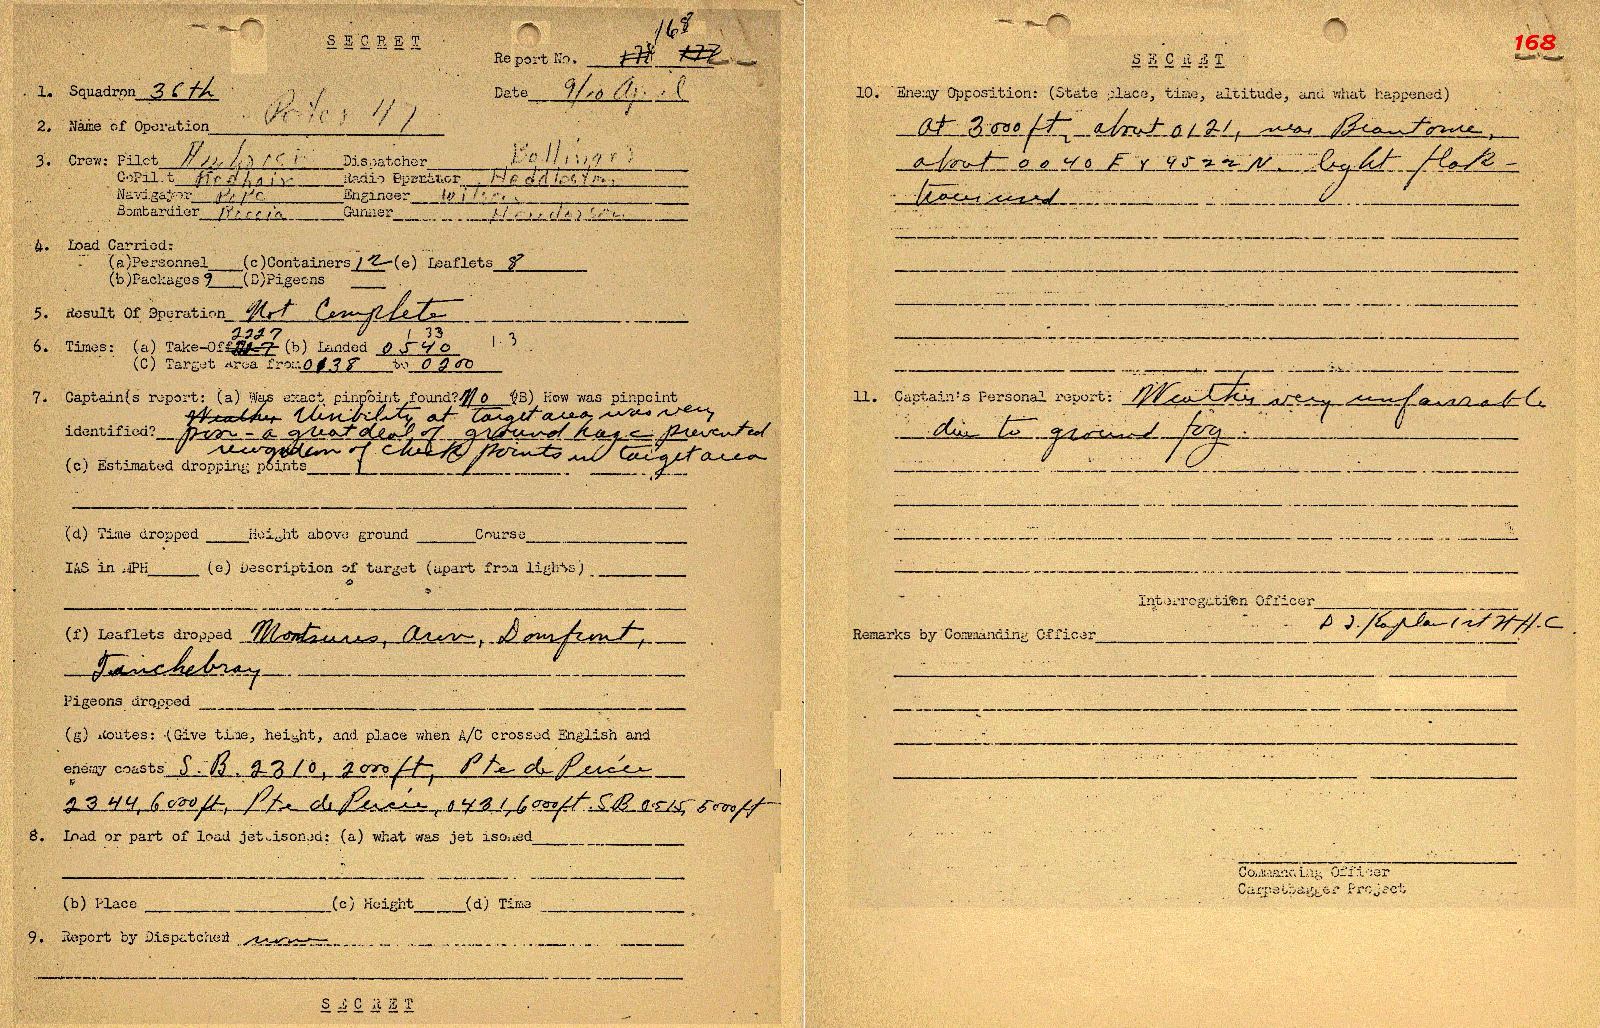 SECRET
168
Report No. 178 177
1. Squadron 36th
Date 9/10 April
2. Name of Operation
3. Crew: Pilot Dispatcher
CoPilot Radio Operator
Navigator Pope Engineer Wilson
Bombardier Gunner Henderson
4. Load Carried:
(a)Personnel (c)Containers 12 (e) Leaflets 8
(b)Packages 9 (D)Pigeons
5. Result Of Operation Not Complete
2227 1 33
6. Times: (a) Take-Off (b) Landed 0540 1.3
(C) Target Area from 0138 to 0200
7. Captain's report: (a) Was exact pinpoint found? No (B) How was pinpoint
Weather Visibility at target area was very
identified? poor - a great deal of ground haze prevented
recognition of check points in target area
(c) Estimated dropping points
(d) Time dropped Height above ground Course
IAS in MPH (e) Description of target (apart from lights)
(f) Leaflets dropped Montsurs, Domfront,
Tinchebray
Pigeons dropped
(g) Routes: (Give time, height, and place when A/C crossed English and
enemy coasts S.B. 2310, 2000 ft, Pte de Percée
2344, 6000 ft, Pte de Percée, 0431, 6000 ft. S.B 0515, 5000 ft
8. Load or part of load jettisoned: (a) what was jettisoned
(b) Place (c) Height (d) Time
9. Report by Dispatcher none
SECRET
168
SECRET
10. Enemy Opposition: (State place, time, altitude, and what happened)
At 3000 ft, about 0121, near Brantome,
about 0040 E x 4522 N. light flak -
tracer used
11. Captain's Personal report: Weather very unfavorable
due to ground fog.
Interrogation Officer
D J. Kaplan 1st Lt A.C
Remarks by Commanding Officer
Commanding Officer
Carpetbagger Project